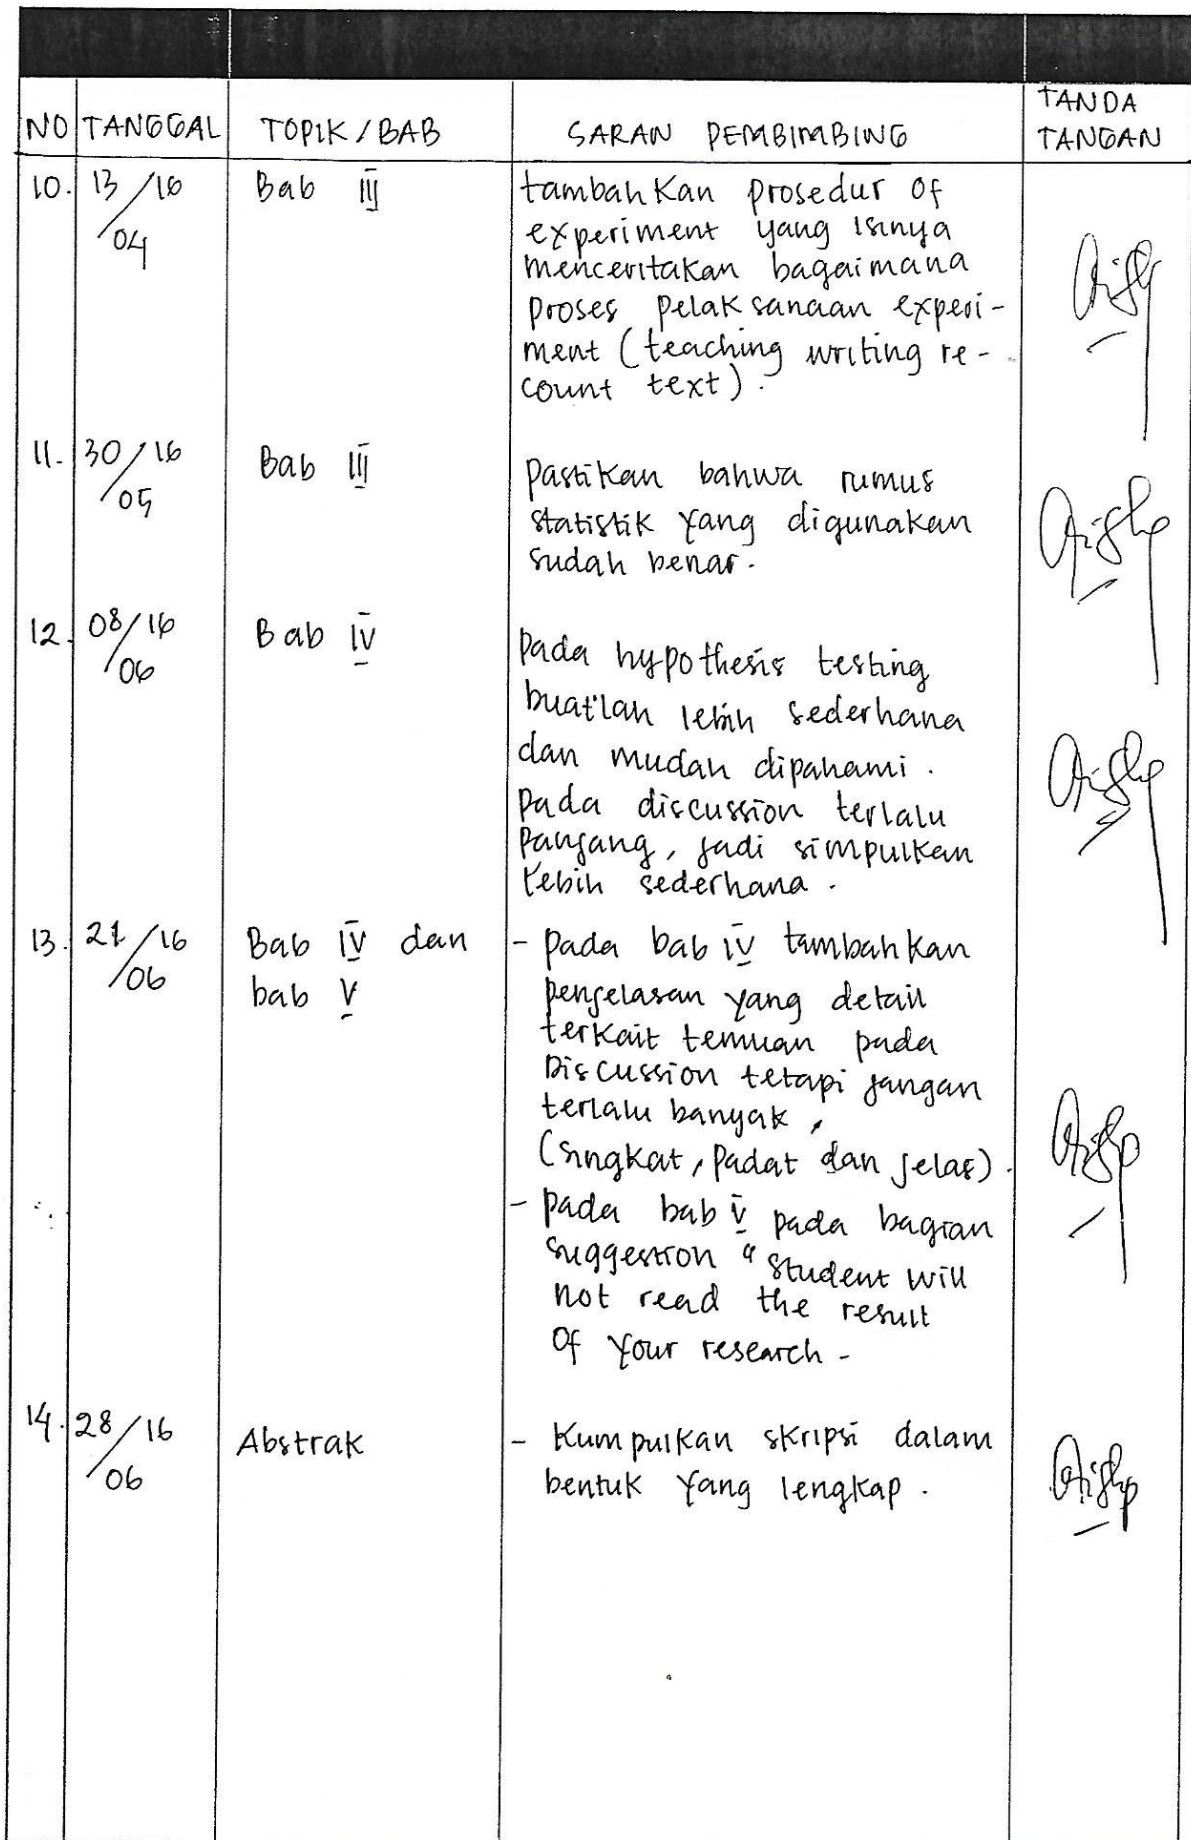 NO TANGGAL TOPIK / BAB SARAN PEMBIMBING TANDA TANGAN
10. 13/16 04 Bab III tambahkan prosedur of
experiment yang isinya
menceritakan bagaimana
proses pelaksanaan experi-
ment (teaching writing re-
count text).
11. 30/16 05 Bab III pastikan bahwa rumus
statistik yang digunakan
sudah benar.
12. 08/16 06 Bab IV pada hypothesis testing
buatlah lebih sederhana
dan mudah dipahami.
pada discussion terlalu
panjang, jadi simpulkan
lebih sederhana.
13. 21/16 06 Bab IV dan - pada bab IV tambahkan
bab V penjelasan yang detail
terkait temuan pada
Discussion tetapi jangan
terlalu banyak,
(singkat, padat dan jelas).
- pada bab V pada bagian
suggestion "student will
not read the result
of your research -
14. 28/16 06 Abstrak - Kumpulkan skripsi dalam
bentuk yang lengkap.